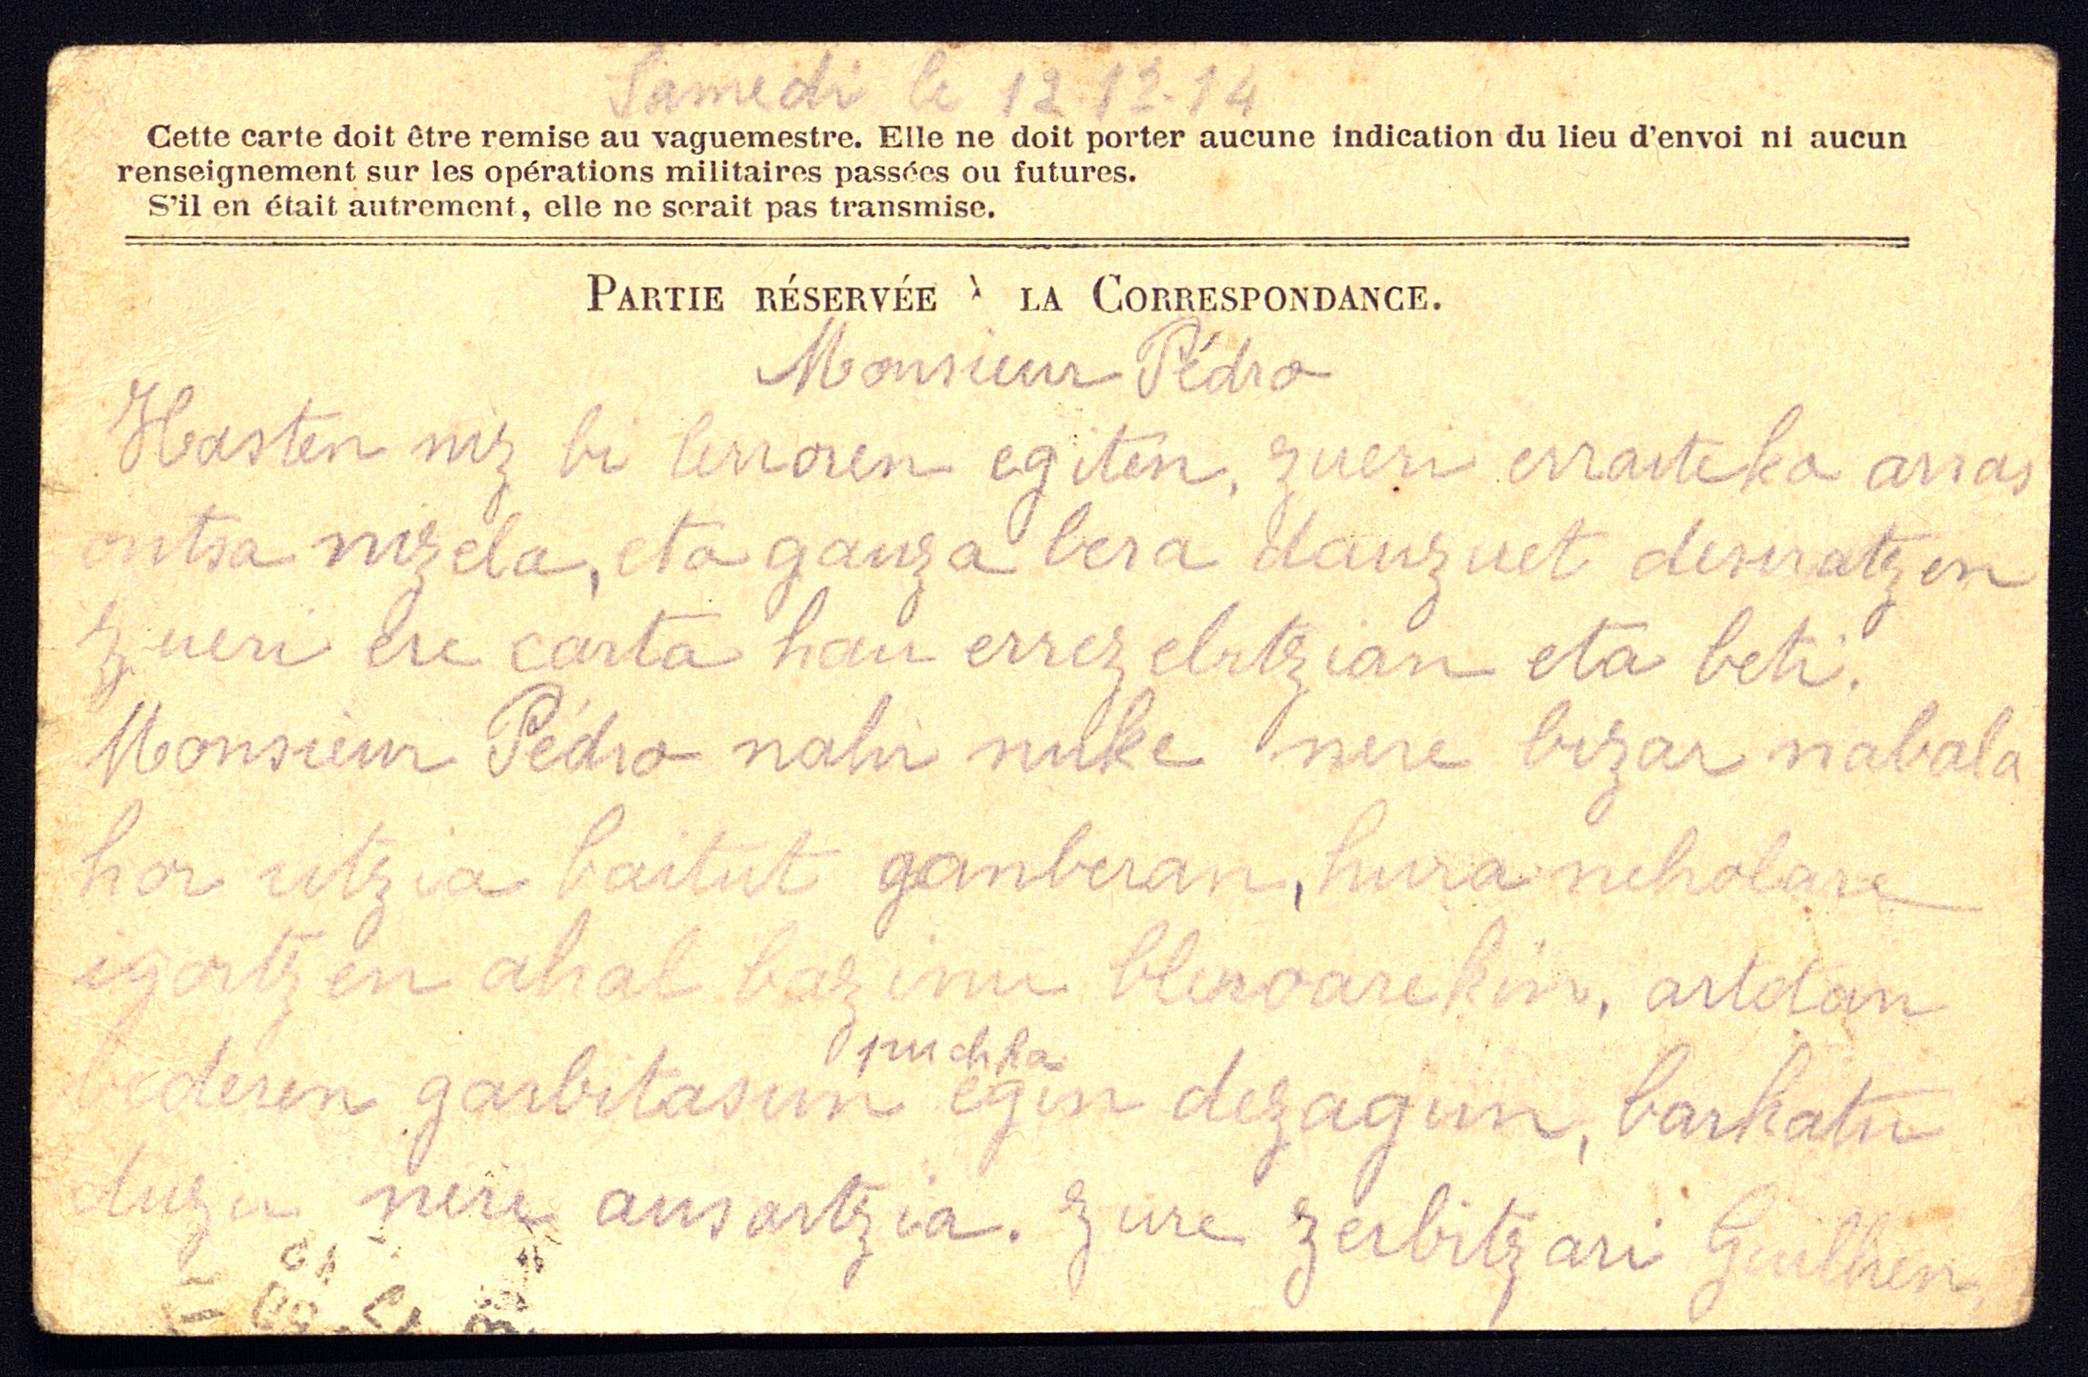 Samedi le 12.12.14
Cette carte doit être remise au vaguemestre. Elle ne doit porter aucune indication du lieu d'envoi ni aucun
renseignement sur les opérations militaires passées ou futures.
S'il en était autrement, elle ne serait pas transmise.
PARTIE RÉSERVÉE À LA CORRESPONDANCE.
Monsieur Pédro
Hasten niz bi lerroren egiten, zueri erraiteko arras
ontsa nizela, eta gauza bera dauzuet desiratzen
zueri ere carta hau errezebitzian eta beti.
Monsieur Pédro nahi nuke nere bizar nabala
hor utzia baitut ganberan, hura neholare
igortzen ahal bazinu, artetan
bederen garbitasun puchka egin dezagun, barkatu
duzu nere ausartzia. Zure zerbitzari Guilhen